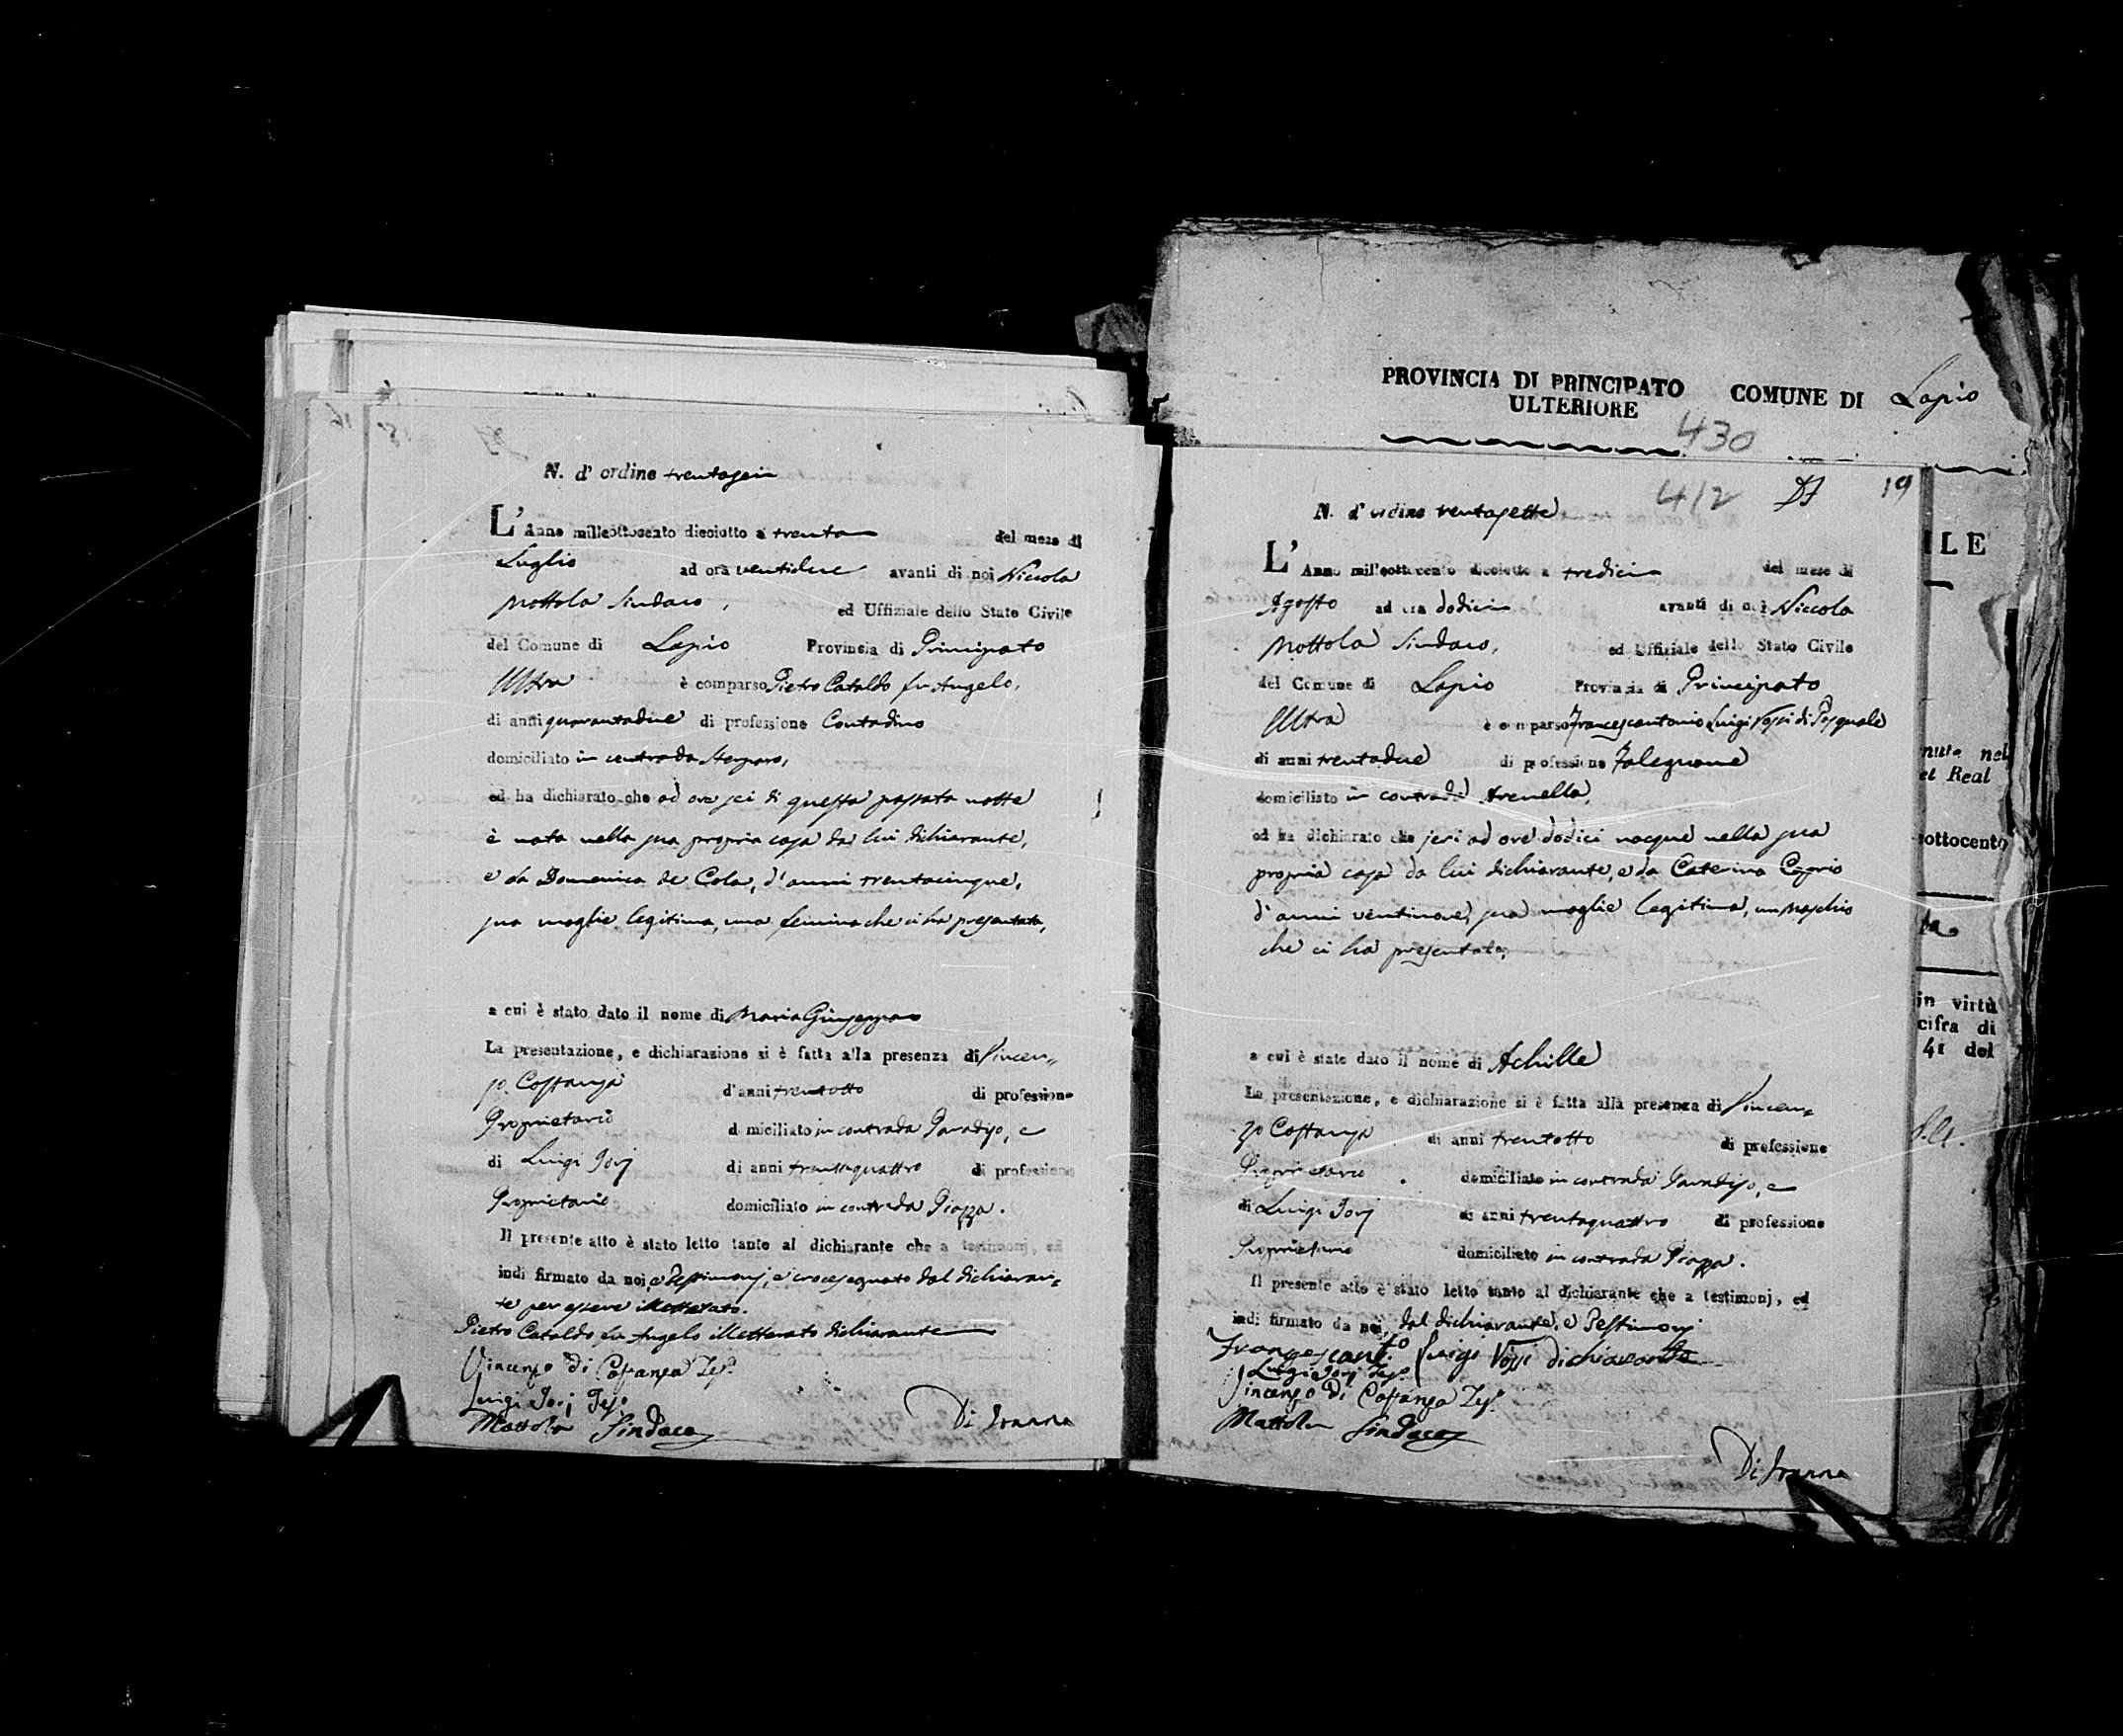 N. d' ordine trentasei
L' Anno milleottocento dieciotto a trenta del mese di
Luglio ad ora ventidue avanti di noi Niccola
Mottola Sindaco, ed Uffiziale dello Stato Civile
del Comune di Lapio Provincia di Principato
Ultra è comparso Pietro Cataldo fu Angelo,
di anni quarantadue di professione Contadino
domiciliato in contrada
ed ha dichiarato che ad ore sei di questa passata notte
è nata nella sua propria casa da lui dichiarante,
e da Domenica de Cola, d'anni trentacinque,
sua moglie legitima, una femina che ci ha presentata,
a cui è stato dato il nome di Maria Giuseppa
La presentazione, e dichiarazione si è fatta alla presenza di Vincen=
zo Costanza d'anni trentotto di professione
Proprietario domiciliato in contrada Paradiso, e
di Luigi Iorj di anni trentaquattro di professione
Proprietario domiciliato in contrada Piazza.
Il presente atto è stato letto tanto al dichiarante che a testimonj, ed
indi firmato da noi, e Testimonj, e crocesegnato dal dichiaran=
te per essere illetterato.
Pietro Cataldo fu Angelo illetterato dichiarante
Vincenzo Di Costanza Tes.º
Luigi Iorj Tes.º
Mottola Sindaco
PROVINCIA DI PRINCIPATO ULTERIORE COMUNE DI Lapio
430
412 19
N. d' ordine trentasette
L' Anno milleottocento dieciotto a tredici del mese di
Agosto ad ora dodici avanti di noi Niccola
Mottola Sindaco, ed Uffiziale dello Stato Civile
del Comune di Lapio Provincia di Principato
Ultra è comparso Francescantonio Luigi Vossi di Pasquale
di anni trentadue di professione Falegname
domiciliato in contrada trenella,
ed ha dichiarato che jeri ad ore dodici nacque nella sua
propria casa da lui dichiarante, e da Caterina Caprio
d'anni ventinove, sua moglie legitima, un maschio
che ci ha presentato,
a cui è stato dato il nome di Achille
La presentazione, e dichiarazione si è fatta alla presenza di Vincen=
zo Costanza di anni trentotto di professione
Proprietario domiciliato in contrada Paradiso, e
di Luigi Iorj di anni trentaquattro di professione
Proprietario domiciliato in contrada Piazza.
Il presente atto è stato letto tanto al dichiarante che a testimonj, ed
indi firmato da noi, dal dichiarante, e Testimonj
Francescant.º Luigi Vossi dichiarante
Luigi Iorj Tes.º
Vincenzo Di Costanza Tes.º
Mottola Sindaco
ILE
nute nel
et Real
ottocento
in virtù
cifra di
41 del